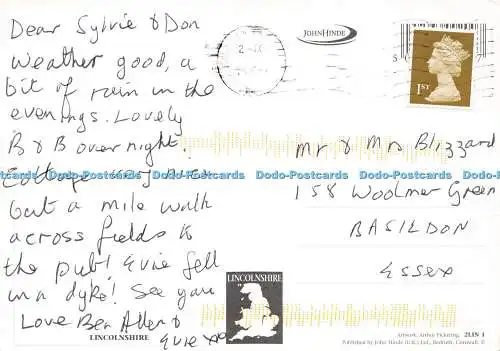 Dear Sylvie & Don
Weather good, a
bit of rain in the
evenings. Lovely
B & B overnight.
Cottage
but a mile walk
across fields to
the pub! Evie fell
in a dyke! See you
Love Ben Allen &
Evie xx
JOHN HINDE
1ST
Mr & Mrs Blizzard
158 Woolmer Green
BASILDON
ESSEX
Dodo-Postcards Dodo-Postcards Dodo-Postcards Dodo-Postcards Dodo-Postcards
LINCOLNSHIRE
LINCOLNSHIRE
Artwork: Arthur Pickering. 2LIN 1
Published by John Hinde (U.K.) Ltd., Redruth, Cornwall.